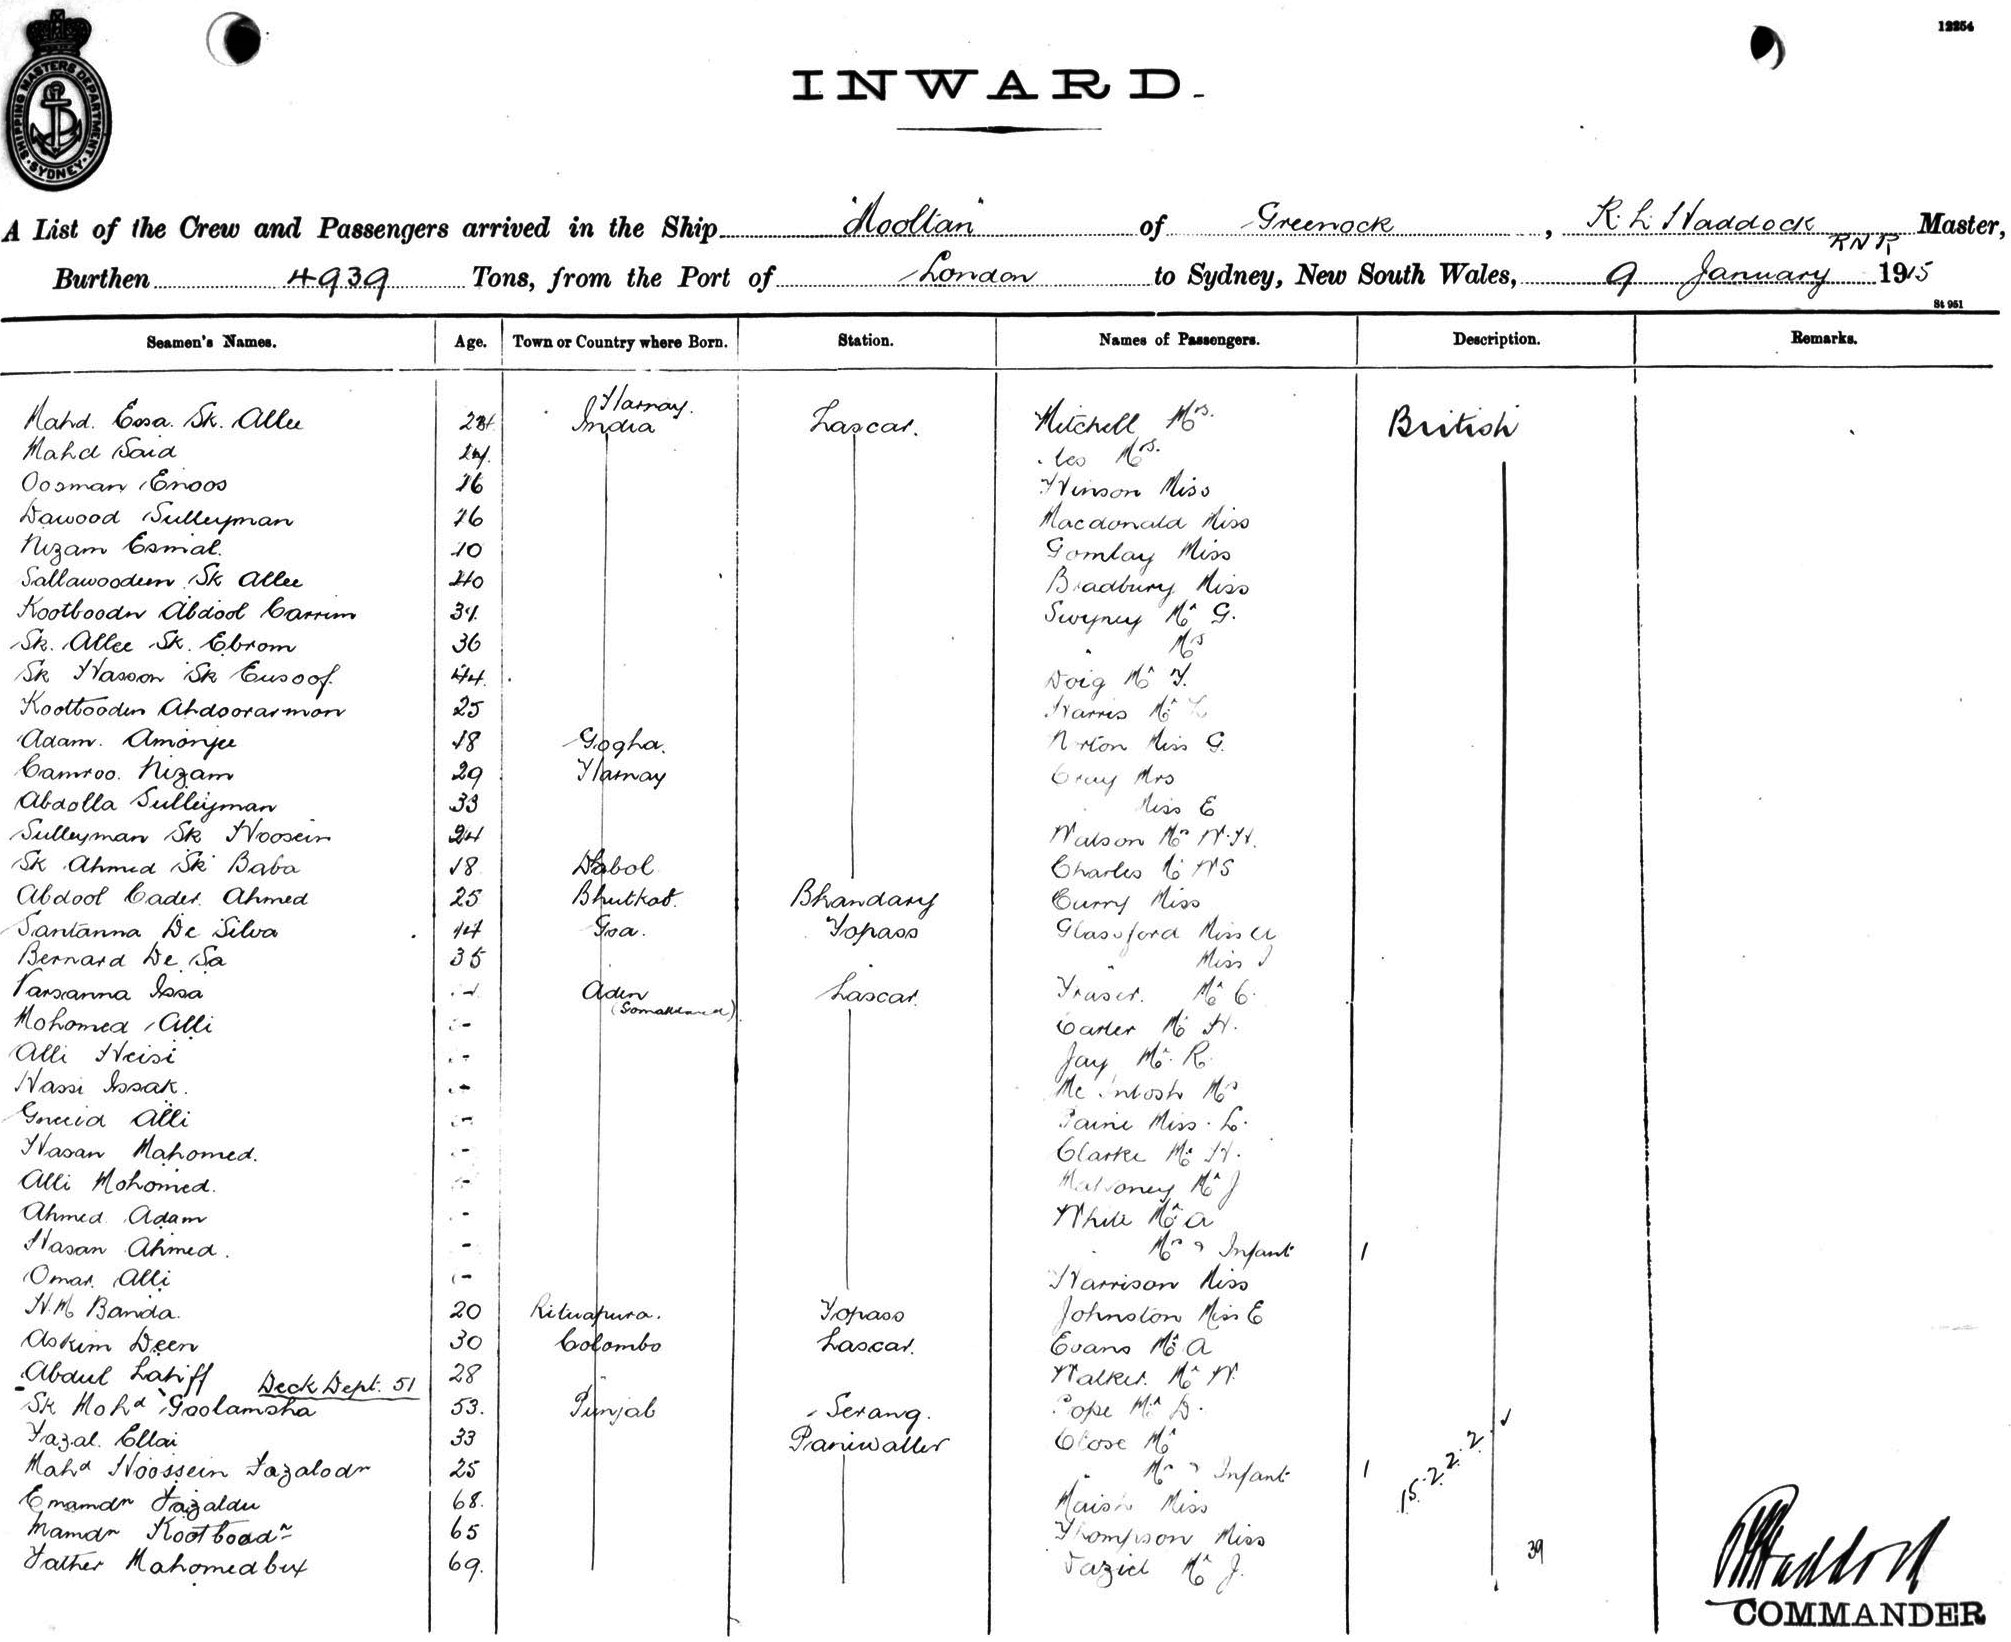 12254
SHIPPING MASTERS DEPARTMENT · SYDNEY ·
INWARD.
A List of the Crew and Passengers arrived in the Ship "Mooltan" of Greenock, R. L. Haddock RNR Master,
Burthen 4939 Tons, from the Port of London to Sydney, New South Wales, 9 January 1915
St 951
Seamen's Names. Age. Town or Country where Born. Station. Names of Passengers. Description. Remarks.
Harnay.
Mahd. Essa. Sk. Allee India Lascar. Mitchell Mrs. British
Mahd Said 24. Mrs.
Oosman Enoos 26 Hinson Miss
Dawood Sulleyman 26 Macdonald Miss
Nizam Esmal. 40 Gomlay Miss
Sallawoodeen Sk Allee 40 Bradbury Miss
Kootboodn Abdool Carrim 34. Swyney Mr G.
Sk. Allee Sk. Ebrom 36 " Mrs
Sk Hasson Sk Eusoof. 44. Doig Mr F.
Kootbooden Abdoorarmon 25 Harris Mr
Adam. Amonjee 18 Gogha. Norton Miss G.
Camroo. Nizam 29 Harnay Gray Mrs
Abdolla Sulleyman 33 Miss E
Sulleyman Sk Hoosein 24 Watson Mr W. H.
Sk Ahmed Sk Baba 18 Dabol Charles Mr W S
Abdool Cader. Ahmed 25 Bhutkab. Bhandary Curry Miss
Santanna De Silva 44 Goa. Topass Glassford Miss A
Bernard De Sa 35 " Miss J
Varsanna Issa - Aden Lascar. Fraser. Mr C.
(Somaliland)
Mohomed Alli - Carter Mr H.
Alli Heisi - Jay Mr. R.
Hassi Issak. - McIntosh Mrs
Gneeid Alli - Paine Miss. L.
Hasan Mahomed. - Clarke Mr H.
Alli Mohomed. - Mahoney Mr J
Ahmed Adam - White Mr A
Hasan Ahmed. - Mrs & Infant 1
Omar. Alli - Harrison Miss
H. M. Banda. 20 Topass Johnston Miss E
Askim Deen 30 Colombo Lascar. Evans Mr. A
Abdul Latiff 28 Walker. Mr W.
Deck Dept. 51
Sk Mohd Goolamsha 53. Punjab Serang. Pope Mr D.
Fazal. Ellai 33 Paniwaller Close Mr
Mahd Hoossein Fazalodn 25 " Mrs & Infant 1
15. 2. 2. 2. 2
Emamdn Faizaldu 68. Miss
Mamdn Kootboadn 65 Thompson Miss
Father Mahomedbux 69. Faziel Mr J. 39
COMMANDER